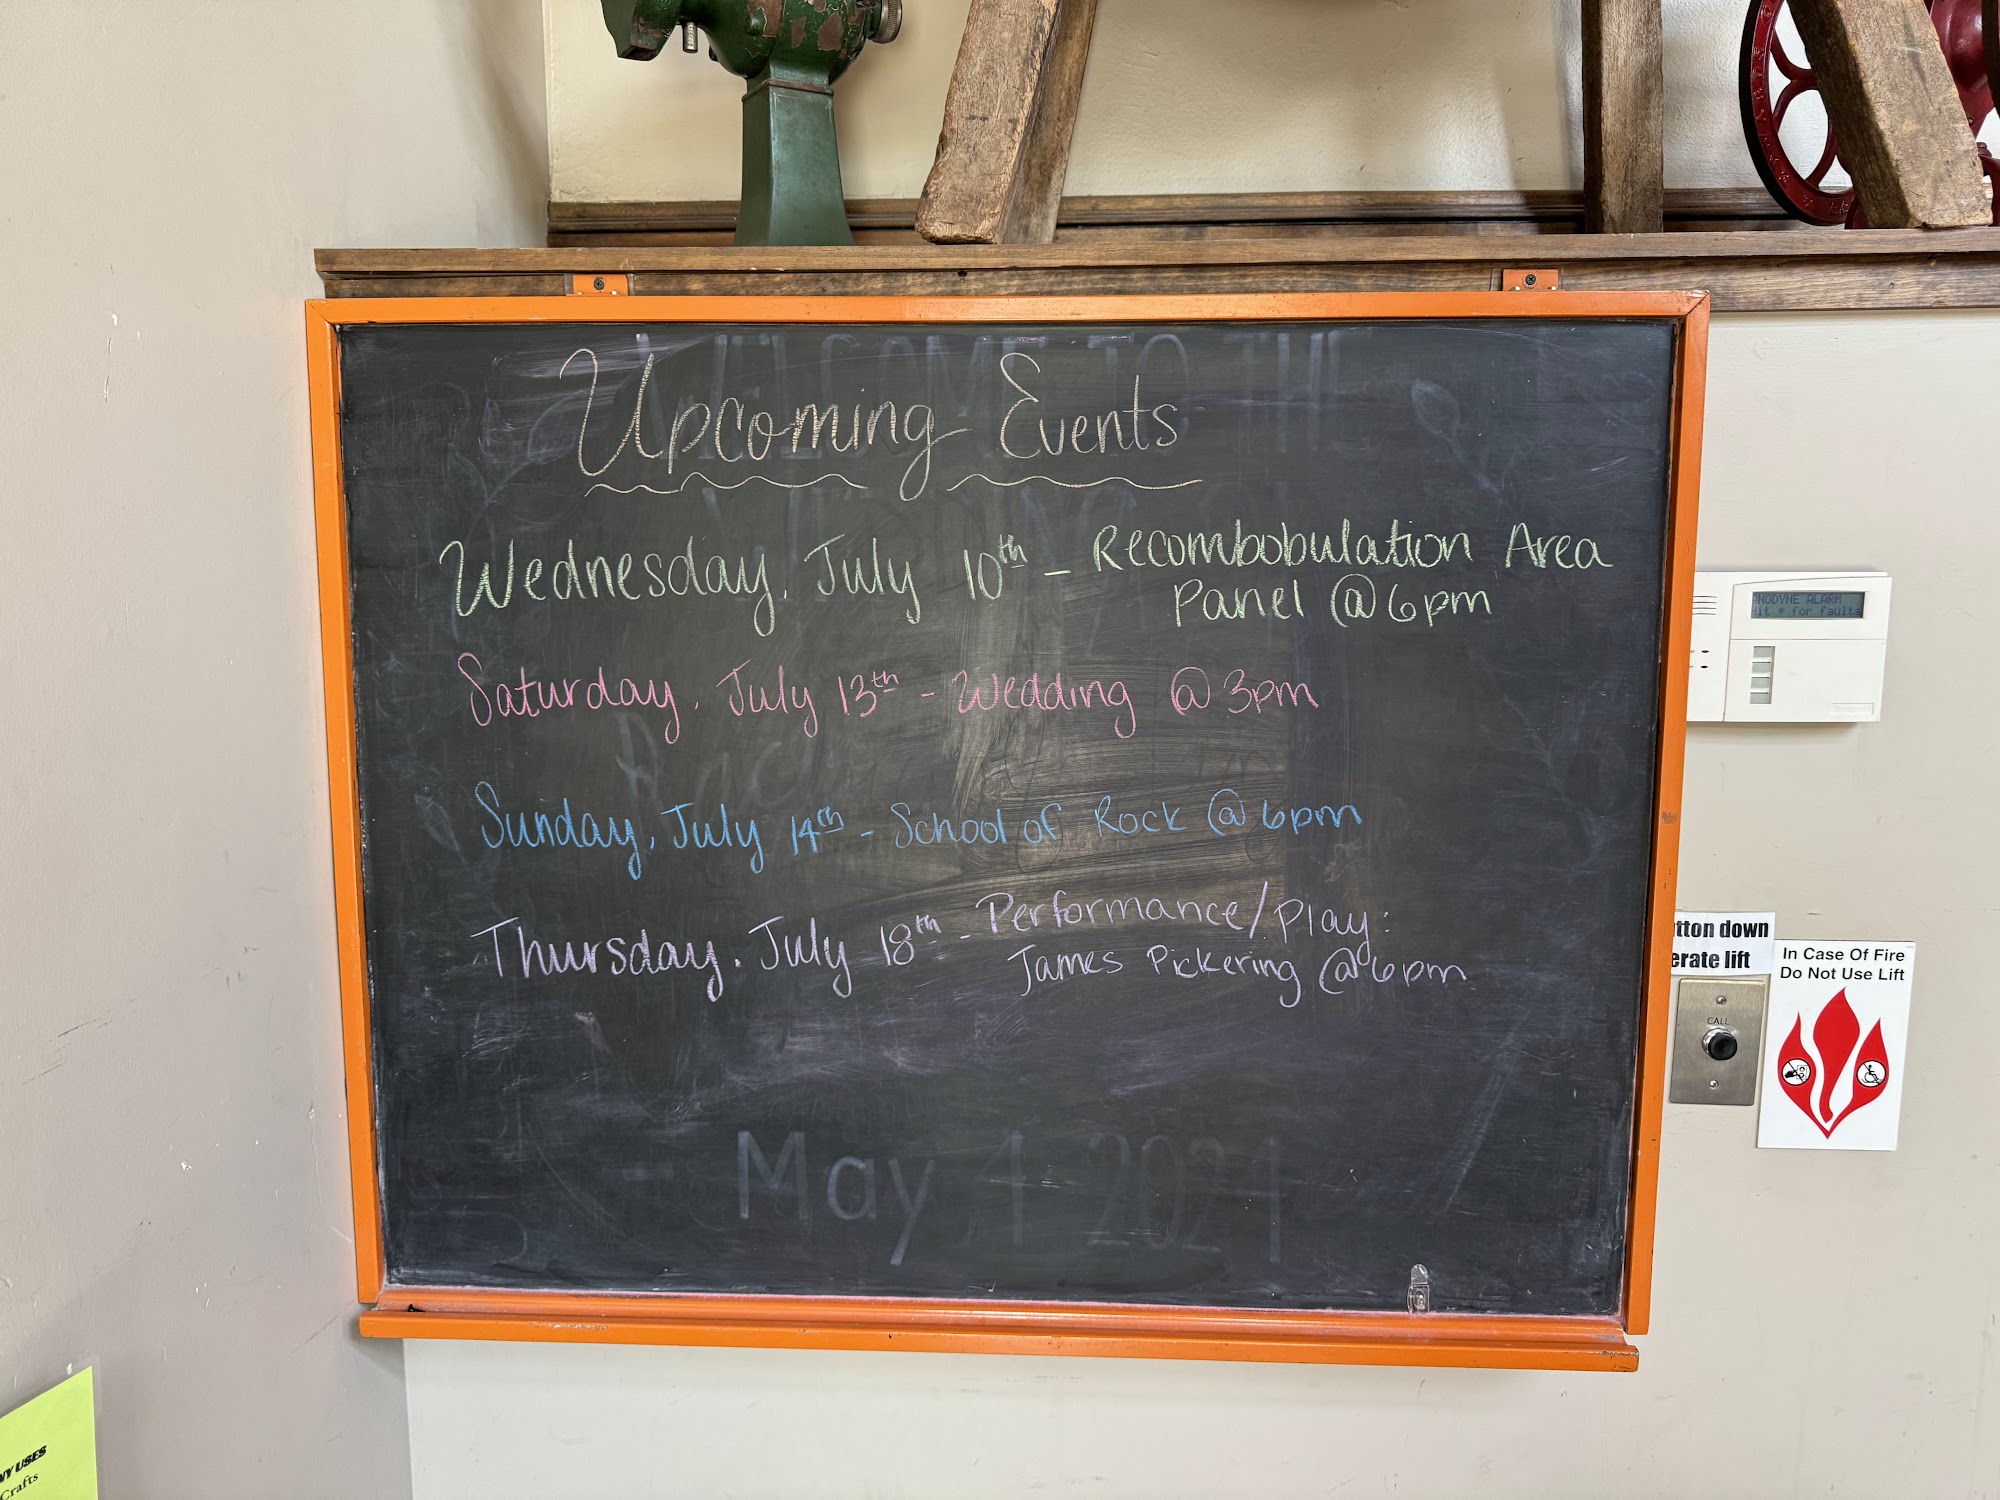 WELCOME TO THE
Upcoming Events
WEDDING OF
Wednesday, July 10th - Recombobulation Area
Panel @ 6pm
Saturday, July 13th - Wedding @ 3pm
Sunday, July 14th - School of Rock @ 6pm
Thursday, July 18th - Performance/Play:
James Pickering @ 6pm
May 1 2021
NODYNE ALARM
it * for faults
tton down
erate lift
In Case Of Fire
Do Not Use Lift
CALL
NY USES
Crafts